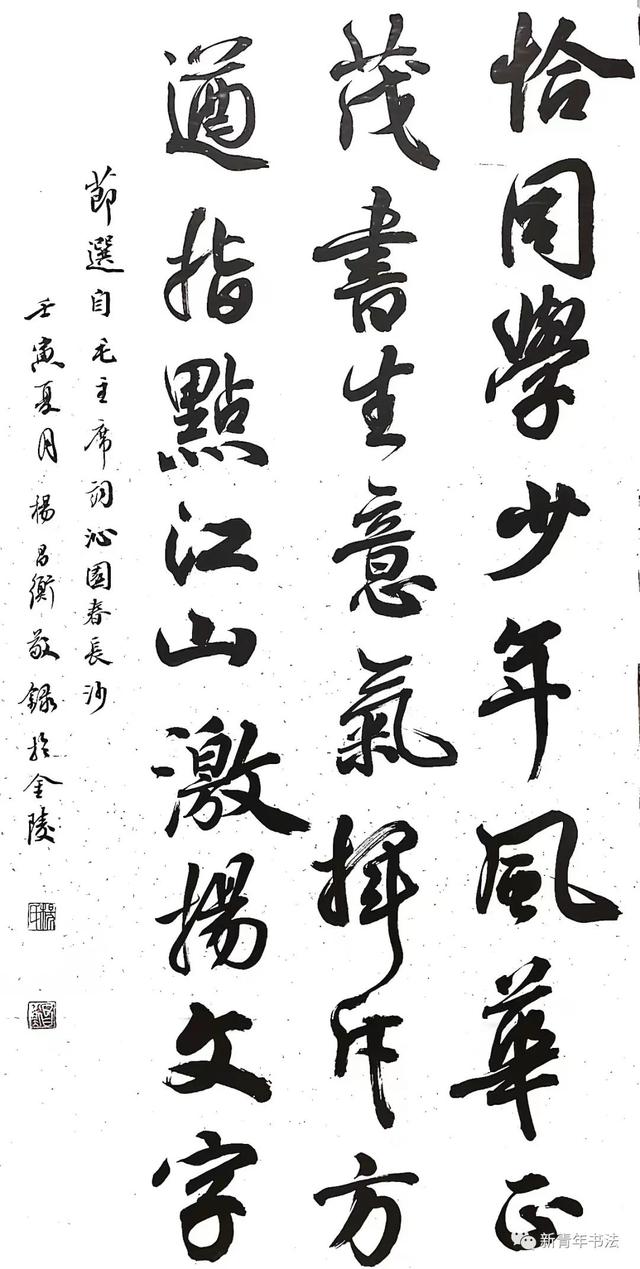 恰同學少年風華正
茂書生意氣揮斥方
遒指點江山激揚文字
節選自毛主席詞沁園春長沙
壬寅夏月楊昌衡敬錄於金陵
新青年书法